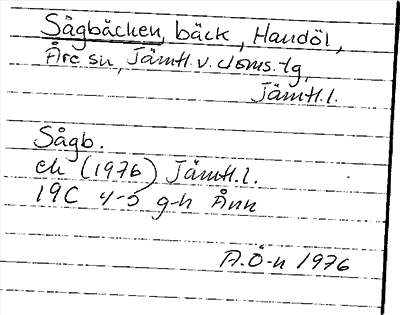 Sågbäcken, bäck, Handöl,
Åre sn, Jämtl. v. doms. tg,
Jämtl. l.
Sågb.
ek (1976) Jämtl. l.
19C 4-5 g-h Ånn
A.Ö-n 1976